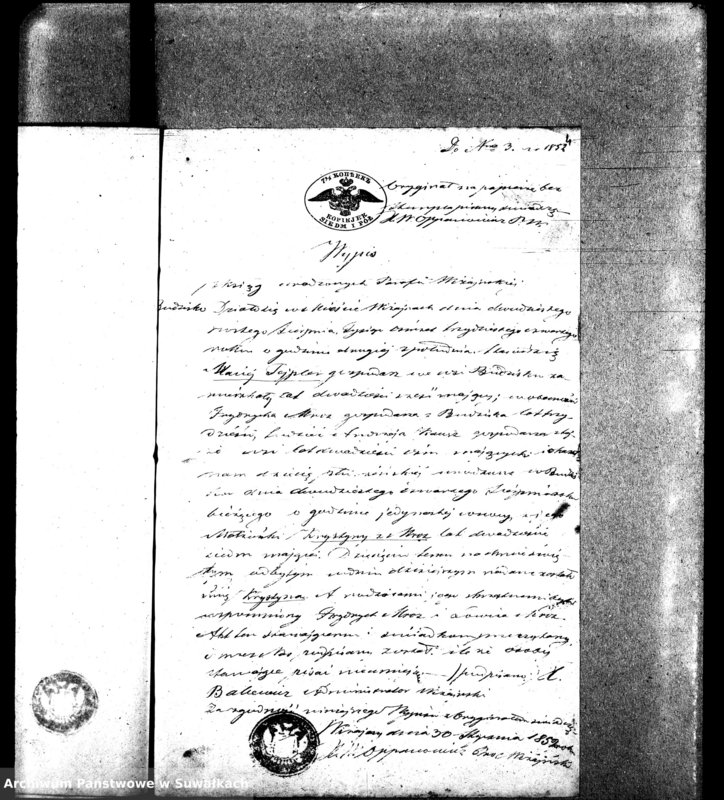 Do Nro 3. 1852
7½ КОПѢЕКЪ
KOPIJEK
SIEDM I PÓŁ
Oryginał na papierze bez
Wypis
z ksiąg urodzonych Parafii Wiżajńskiej
Budzisko Działo się w Mieście Wiżajnach dnia dwudziestego
szóstego Sierpnia, Tysiąc ośmset trzydziestego czwartego
roku o godzinie drugiej z południa. Stawił się
Maciej Tejpler gospodarz we wsi Budzisku za
mieszkały lat dwadzieścia sześć mający, w obecności
Frydrycha Mroz gospodarza z Budziska lat trzy
dzieści, gospodarza z tej
że wsi lat dwadzieścia ośm mających i okazał
nam dziecię płci żeńskiej urodzone w Budzi
sku dnia dwudziestego czwartego Sierpnia roku
bieżącego o godzinie jedynastej z jego
Małżonki Krystyny z Mroz lat dwadzieścia
siedm mającej. Dziecięciu temu na chrzcie świę
tym odbytym w dniu dzisiejszym nadane zostało
Imię Krystyna A rodzicami jego chrzestnemi byli
wspomniony Frydrych Mroz i Mroz.
Akt ten stawającemu i świadkom przeczytany
i przez podpisany został, ile że osoby
stawające pisać nieumieją (podpisano) X.
Balcewicz Administrator Wiżajński
Za zgodność niniejszego Wypisu z Oryginałem
Wiżajny dnia 30 Stycznia 1852 roku
Oppanowicz Prob. Wiżajński
Archiwum Państwowe w Suwałkach